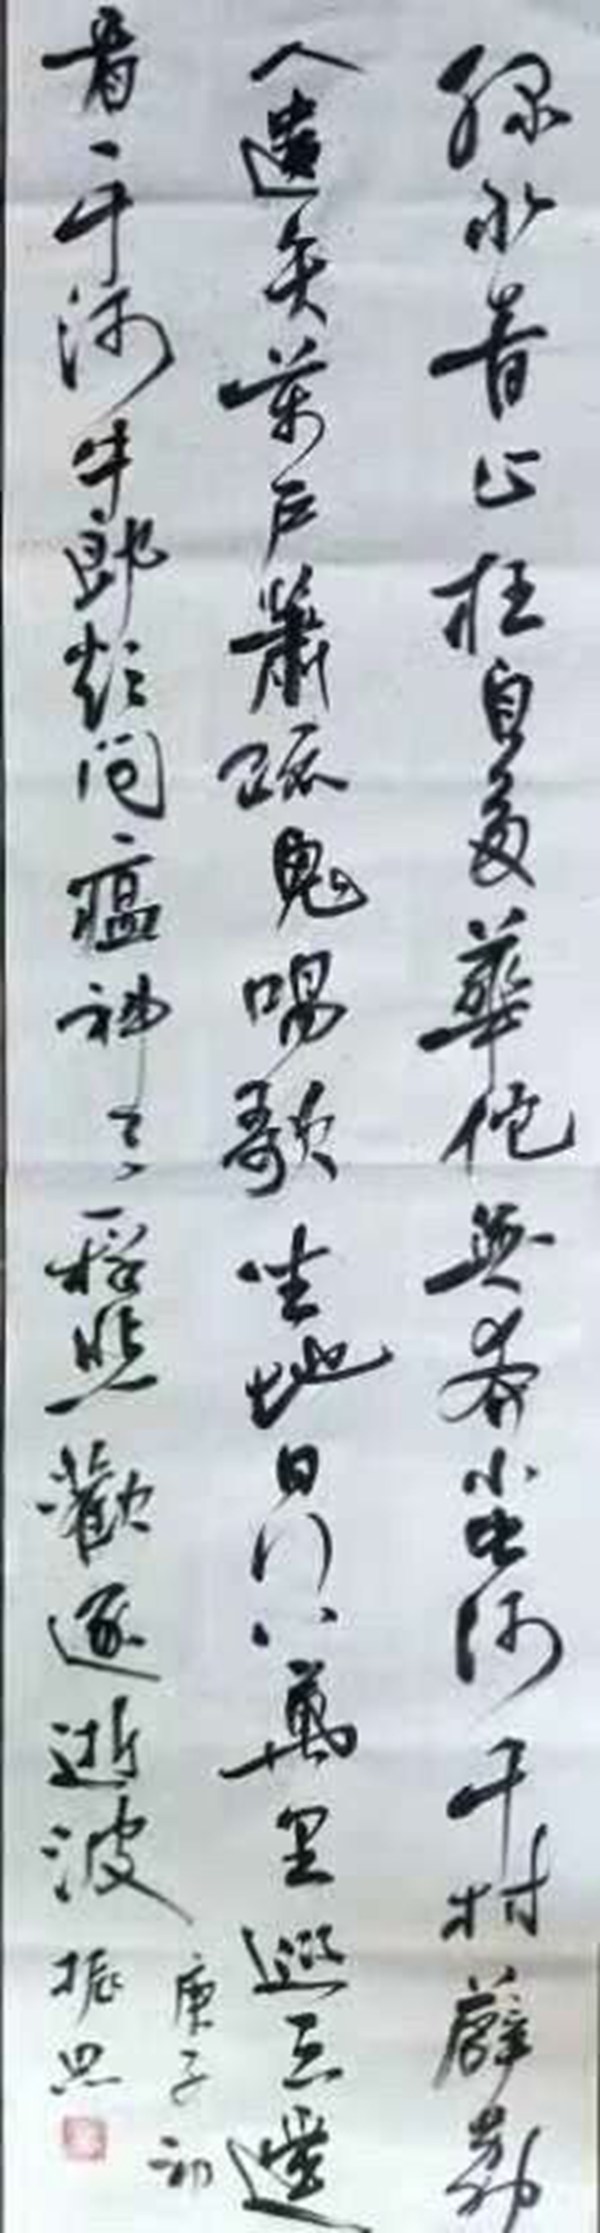 綠水青山枉自多華佗無奈小虫何千村薜荔
人遺矢萬戶蕭疏鬼唱歌坐地日行八萬里巡天遙
看一千河牛郎欲問瘟神事一樣悲歡逐逝波
庚子初
振